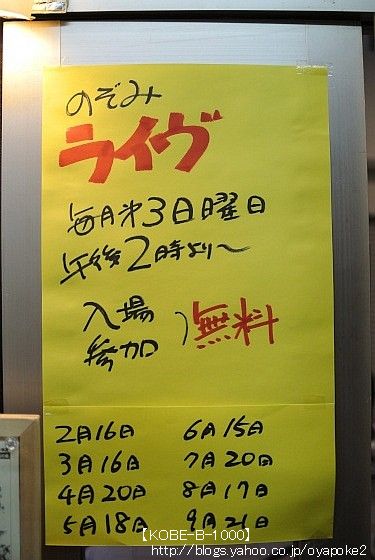 のぞみ
ライヴ
毎月第3日曜日
午後2時より〜
入場
参加
)無料
2月16日 6月15日
3月16日 7月20日
4月20日 8月17日
5月18日 9月21日
【KOBE-B-1000】
http://blogs.yahoo.co.jp/oyapoke2